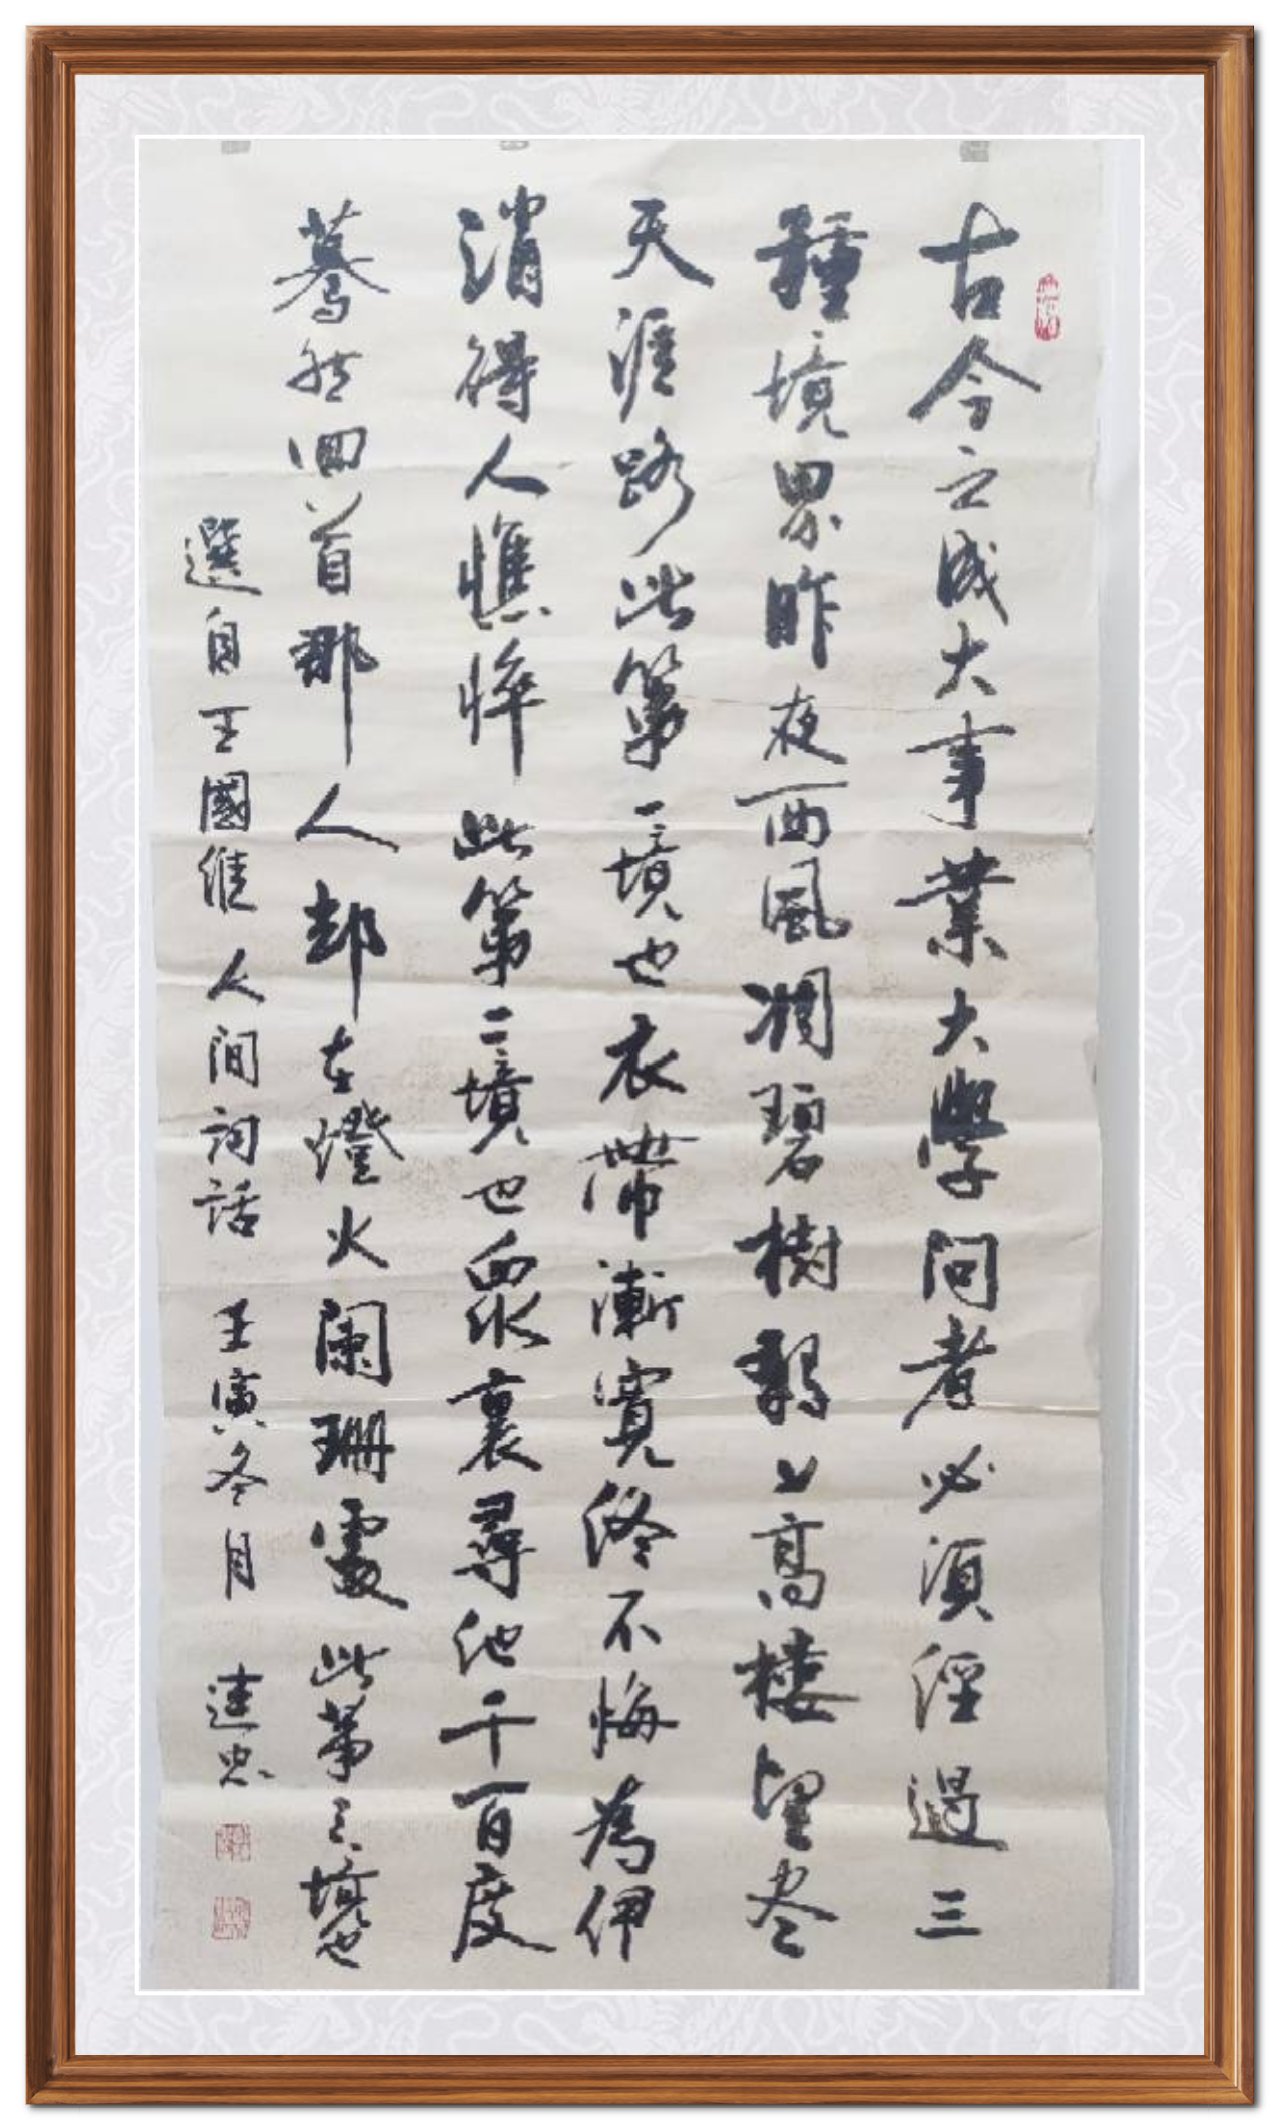 古今之成大事業大學問者必須經過三
種境界昨夜西風凋碧樹獨上高樓望尽
天涯路此第一境也衣帶漸寬終不悔為伊
消得人憔悴此第二境也眾裏尋他千百度
驀然回首那人却在燈火闌珊處此第三境也
選自王國維人間詞話 壬寅冬月 建忠